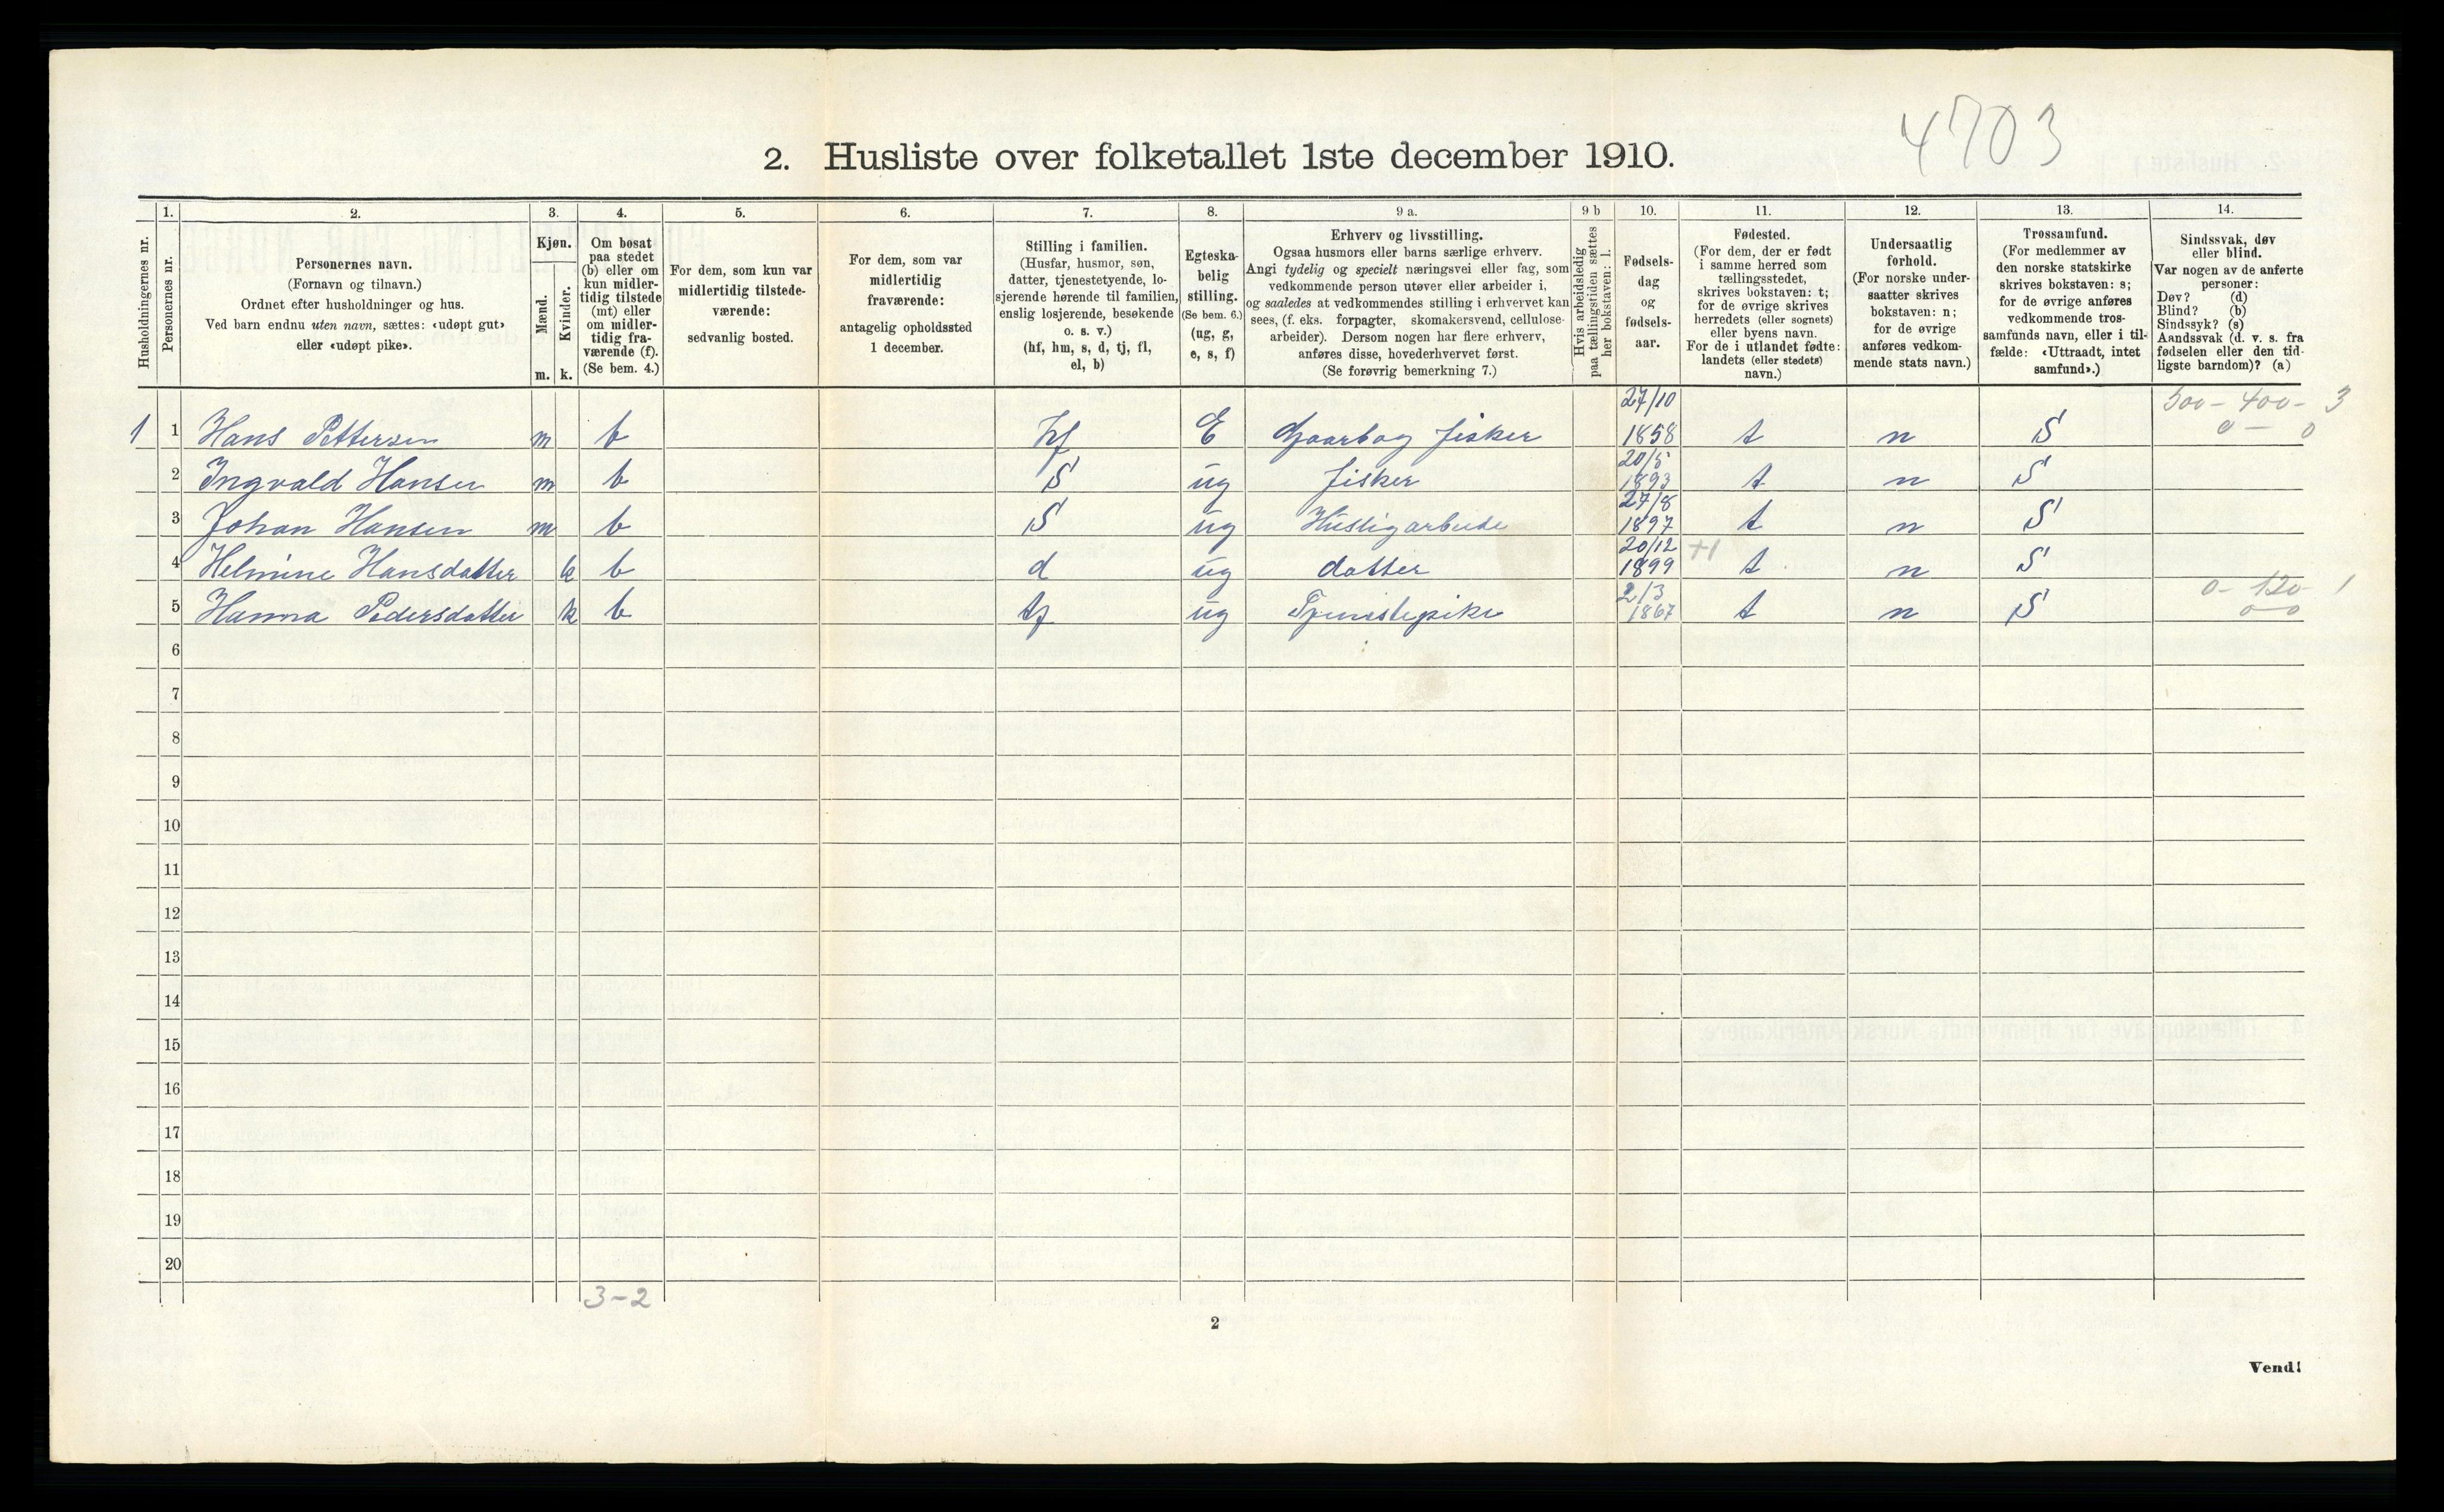 4703
2. Husliste over folketallet 1ste december 1910.
Husholdningernes nr.
1.
Personernes nr.
2.
Personernes navn.
(Fornavn og tilnavn.)
Ordnet efter husholdninger og hus.
Ved barn endnu uten navn, sættes: «udøpt gut»
eller «udøpt pike».
3.
Kjøn.
Mænd.
Kvinder.
m. k.
4.
Om bosat
paa stedet
(b) eller om
kun midler-
tidig tilstede
(mt) eller
om midler-
tidig fra-
værende (f).
(Se bem. 4.)
5.
For dem, som kun var
midlertidig tilstede-
værende:
sedvanlig bosted.
6.
For dem, som var
midlertidig
fraværende:
antagelig opholdssted
1 december.
7.
Stilling i familien.
(Husfar, husmor, søn,
datter, tjenestetyende, lo-
sjerende hørende til familien,
enslig losjerende, besøkende
o. s. v.)
(hf, hm, s, d, tj, fl,
el, b)
8.
Egteska-
belig
stilling.
(Se bem. 6.)
(ug, g,
e, s, f)
9 a.
Erhverv og livsstilling.
Ogsaa husmors eller barns særlige erhverv.
Angi tydelig og specielt næringsvei eller fag, som
vedkommende person utøver eller arbeider i,
og saaledes at vedkommendes stilling i erhvervet kan
sees, (f. eks. forpagter, skomakersvend, cellulose-
arbeider). Dersom nogen har flere erhverv,
anføres disse, hovederhvervet først.
(Se forøvrig bemerkning 7.)
9 b
Hvis arbeidsledig
paa tællingstiden sættes
her bokstaven: l.
10.
Fødsels-
dag
og
fødsels-
aar.
11.
Fødested.
(For dem, der er født
i samme herred som
tællingsstedet,
skrives bokstaven: t;
for de øvrige skrives
herredets (eller sognets)
eller byens navn.
For de i utlandet fødte:
landets (eller stedets)
navn.)
12.
Undersaatlig
forhold.
(For norske under-
saatter skrives
bokstaven: n;
for de øvrige
anføres vedkom-
mende stats navn.)
13.
Trossamfund.
(For medlemmer av
den norske statskirke
skrives bokstaven: s;
for de øvrige anføres
vedkommende tros-
samfunds navn, eller i til-
fælde: «Uttraadt, intet
samfund».)
14.
Sindssvak, døv
eller blind.
Var nogen av de anførte
personer:
Døv? (d)
Blind? (b)
Sindssyk? (s)
Aandssvak (d. v. s. fra
fødselen eller den tid-
ligste barndom)? (a)
1 1 Hans Pettersen m b hf E Gaarbog fisker 27/10 1858 t n S 500 - 400 - 3
0 - 0
2 Ingvald Hansen m b S ug fisker 20/5 1893 t n S
3 Johan Hansen m b S ug Husligarbeide 27/8 1897 t n S
4 Helmine Hansdatter k b d ug datter 20/12 1899 +1 t n S
5 Hanna Pedersdatter k b tj ug Tjenestepike 2/3 1867 t n S 0 - 120 - 1
0 - 0
6
7
8
9
10
11
12
13
14
15
16
17
18
19
20
3-2
2
Vend!